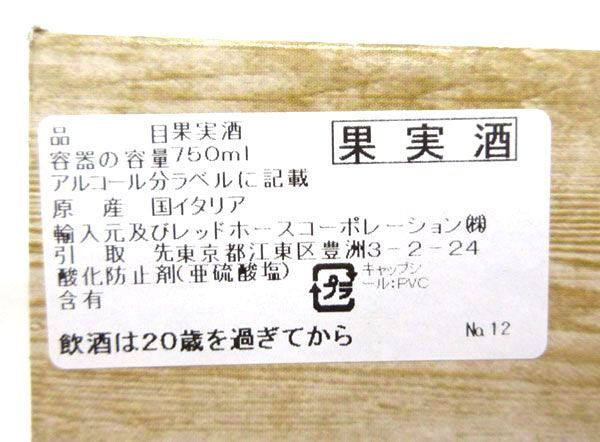 品 目果実酒
果実酒
容器の容量750ml
アルコール分ラベルに記載
原 産 国イタリア
輸入元及びレッドホースコーポレーション㈱
引 取 先東京都江東区豊洲3-2-24
酸化防止剤(亜硫酸塩)
含有
プラ
キャップシ
ール:PVC
飲酒は20歳を過ぎてから
No.12